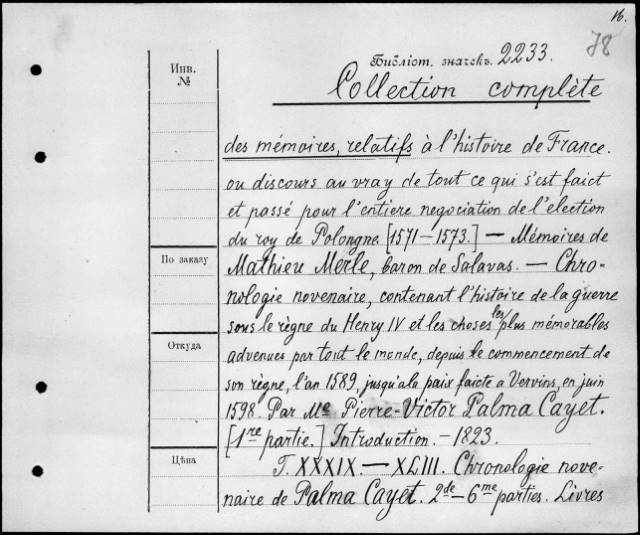 16.
78
Библіот. значекъ. 2233.
Инв.
№
Collection complète
des mémoires, relatifs à l'histoire de France.
ou discours au vray de tout ce qui s'est faict
et passé pour l'entiere negociation de l'election
du roy de Polongne. [1571–1573.] — Mémoires de
По заказу
Mathieu Merle, baron de Salavas. — Chro-
nologie novenaire, contenant l'histoire de la guerre
sous le règne du Henry IV et les choses les plus mémorables
Откуда
advenues par tout le monde, depuis le commencement de
son règne, l'an 1589, jusqu'a la paix faicte a Vervins, en juin
1598. Par Me Pierre-Victor Palma Cayet.
[1re partie.] Introduction. – 1823.
Цѣна
T. XXXIX. — XLIII. Chronologie nove-
naire de Palma Cayet. 2de – 6me parties. Livres